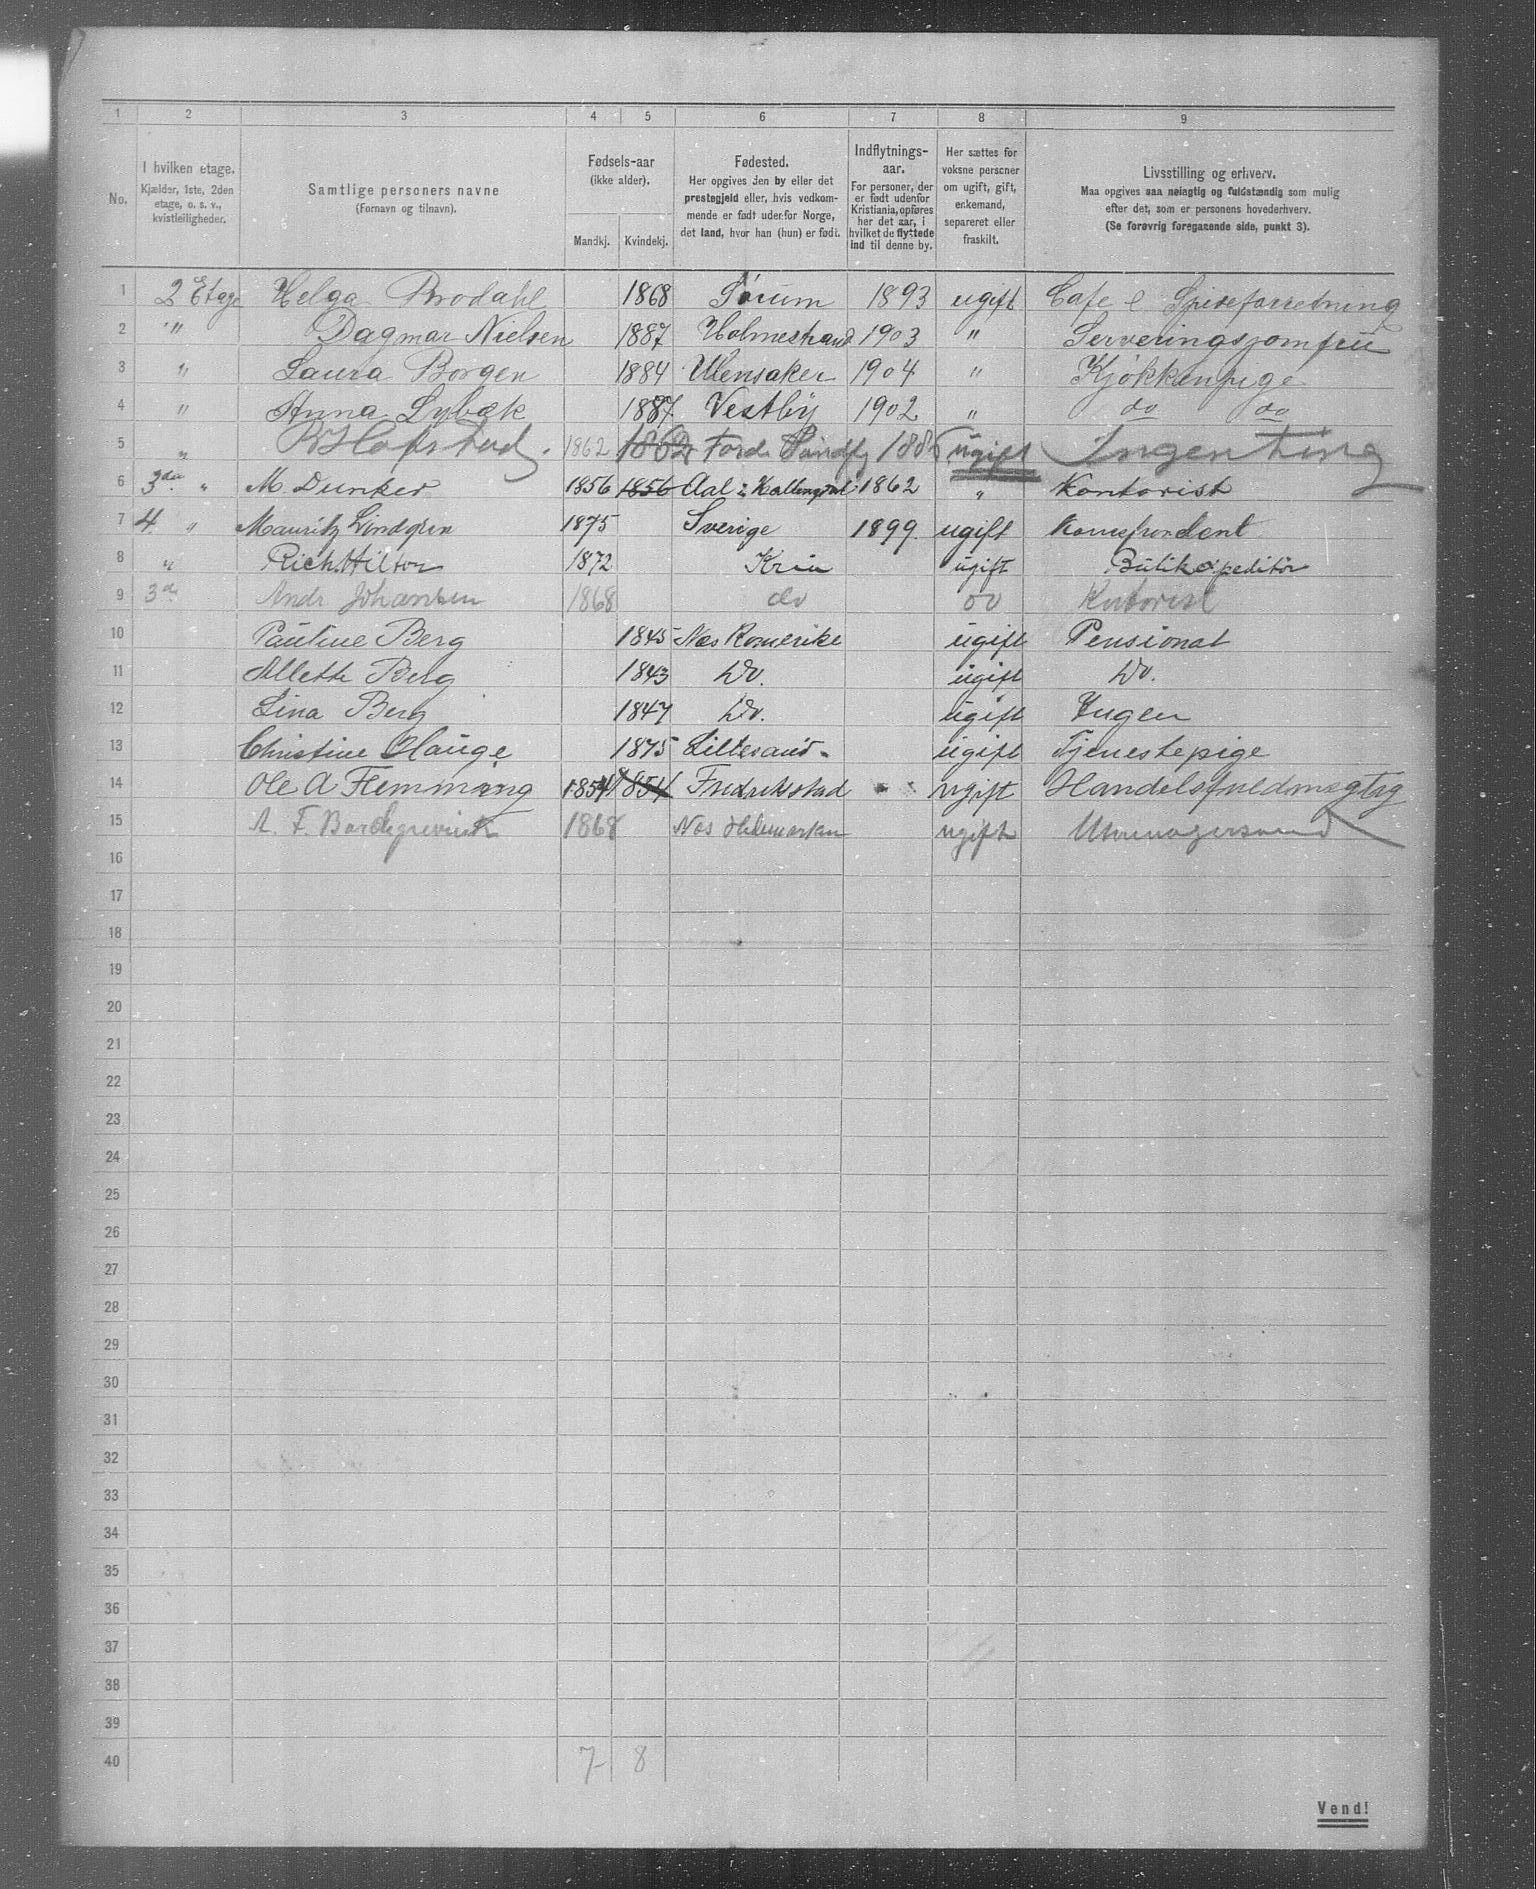 1 2 3 4 5 6 7 8 9
No.
I hvilken etage.
Kjælder, 1ste, 2den
etage, o. s. v.,
kvistleiligheder.
Samtlige personers navne
(Fornavn og tilnavn).
Fødsels-aar
(ikke alder).
Mandkj. Kvindekj.
Fødested.
Her opgives den by eller det
prestegjeld eller, hvis vedkom-
mende er født udenfor Norge,
det land, hvor han (hun) er født.
Indflytnings-
aar.
For personer, der
er født udenfor
Kristiania, opføres
her det aar, i
hvilket de flyttede
ind til denne by.
Her sættes for
voksne personer
om ugift, gift,
enkemand,
separeret eller
fraskilt.
Livsstilling og erhverv.
Maa opgives saa nøiagtig og fuldstændig som mulig
efter det, som er personens hovederhverv.
(Se forøvrig foregaaende side, punkt 3).
1 2 Etage Helga Brodahl 1868 Sørum 1893 ugift Cafe & Spiseforretning
2 " Dagmar Nielsen 1887 Holmestrand 1903 " Serveringsjomfru
3 " Laura Borgen 1884 Ulensaker 1904 " Kjøkkenpige
4 " Anna Lybæk 1887 Vestby 1902 " do do
5 " Hofstad 1862 1862 Førde ugift Ingenting
6 3die " M. Dunker 1856 1856 Aal i Hallingdal 1862 " Kontorist
7 4. " Mauritz Lindgren 1875 Sverige 1899 ugift Korrespondent
8 " Rich. Hilton 1872 Kria ugift Butikexpeditør
9 3die Andr Johansen 1868 do do Kontorist
10 Pauline Berg 1845 Nes Romerike ugift Pensionat
11 Allette Berg 1843 Do. ugift Do.
12 Lina Berg 1847 Do. ugift Ingen
13 Christine Hauge 1875 Lillesand ugift Tjenestepige
14 Ole A Flemming 1854 1854 Fredrikstad ugift Handelsfuldmægtig
15 A. F. Borchgrevink 1868 Nes Hedemarken ugift
16
17
18
19
20
21
22
23
24
25
26
27
28
29
30
31
32
33
34
35
36
37
38
39
40 7 8
Vend!